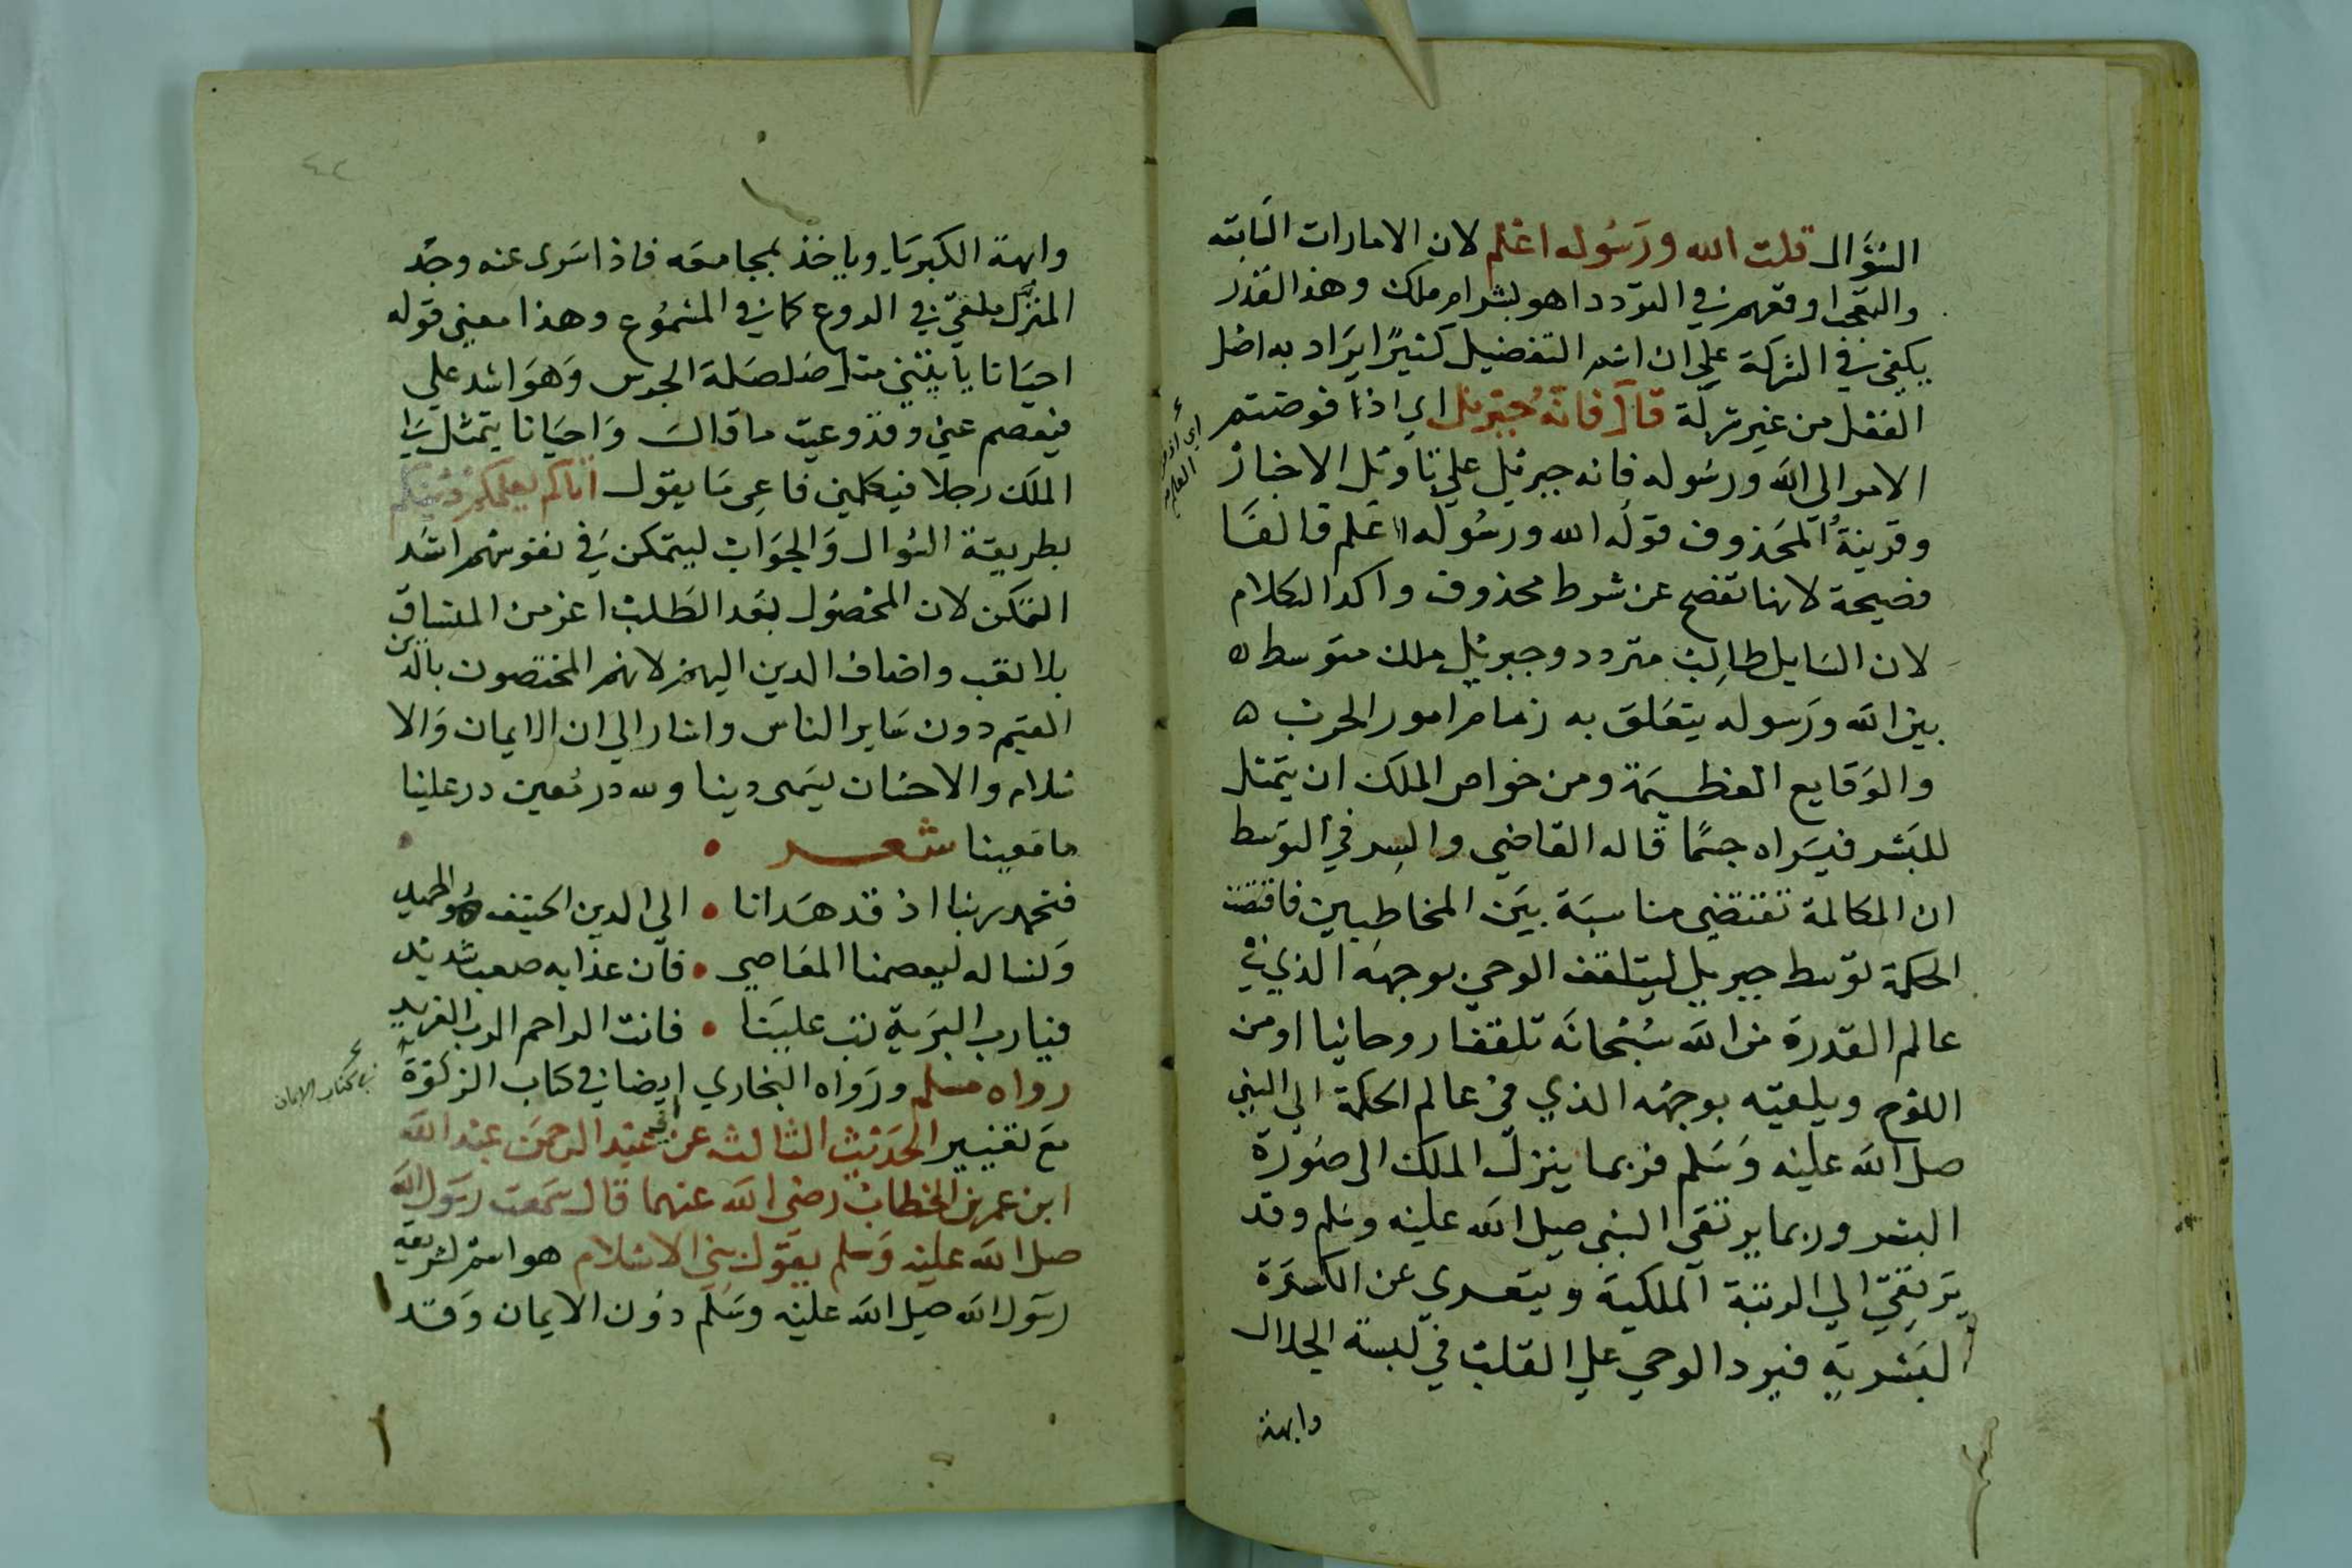 السُؤَال قلت الله ورَسُوله اعْلم لان الامارات السَابقه
والتعجب اوقعهم في التردد اهو بشر ام ملك وهذا القدْر
يكفي في الشركة علي ان اسم التفضيل كثيرًا يرَاد به اصل
الفعل من غير شركة قال فانّهُ جبْريل اي اذا فوضتم
الامر الى الله ورسُوله فانه جبريل علي تاويل الاخبار
وقرينةُ المحَذوف قوله الله ورسُوله اعْلم فالفَا
فصيحة لانها تفصح عن شرط محذوف واكد الكلام
لان السَايل طالِبٌ متردد وجبريل ملك متوسط ه
بين الله ورَسوله يتعَلق به زمام امور الحرب ه
والوَقايع العظـيمَة ومن خواص الملك ان يتمثل
للبَشر فيَراه جسمًا قاله القاضي والسِر في التوسّط
ان المكالمة تقتضي مناسبَة بيَن المخاطبين فاقتضت
الحكمة توسّط جبريل ليتلقف الوحي بوجهه الذي في
عالم القدرة من الله سُبْحانَه تلقفا روحانيا او من
اللوْح ويلقيه بوجهه الذي في عالم الحكمة الي النبي
صلى الله عليْه وَسَلم فربما ينزل الملك الى صُورة
البشر وربما يرتقي النبي صلى الله عليْه وسَلم وقد
يَرتقِيّ الي الرتبة الملكية ويتعـري عن الكسْوَة
البَشرية فيرد الوحي علي القلب في لبسة الجلال
وابهة
وابهة الكبريَاء وياخذ بمجامعَه فاذا سَرى عنه وجَد
المنزل ملقيّ في الروع كما في المسْمُوع وهذا معني قوله
احيَانا ياتيْني مثل صَلصَلة الجرس وَهوَ اشد علي
فيفصم عني وقدْ وعيت ما قال وَاحيَانا يتمثل لي
الملَك رجلا فيكلمني فاعِي مَا يقول اتاكم يعلمكم دينكم
بطريقة السُوال وَالجوَاب ليتمكن في نفوسهم اشَد
التمكن لان المحْصُول بعْد الطَلب اعز من المنساق
بلا تعب واضاف الدين اليهم لانهم المختصون بالدين
القيم دون سَاير الناس واشار الي ان الايمان وَالا
سْلام والاحسَان يسَمى دينا ولله در مُعين در علينا
ما معينا شعـــر
فنحمد ربنا اذ قد هدَانا • الي الدين الحنيف هو الحميد
وَنساله ليعصمنا المعَاصي • فان عذابه صعب شديد
فيا رب البرَية تب عليَنا • فانت الراحم الرب الفريد
رواه مسلم ورَواه البخاري ايضا في كتاب الزكوة
في كتاب الايمان
مَع تغيير الحَديْث الثالث عن ابي عبْد الرحمن عبْد الله
ابن عمر بن الخطاب رضي الله عنهما قال سَمعت رسَول الله
صلى الله عليْه وَسلم يقول بني الاسْلام هو اسم لشريعة
رسَول الله صلى الله عليْه وسَلم دوُن الايمان وَقد